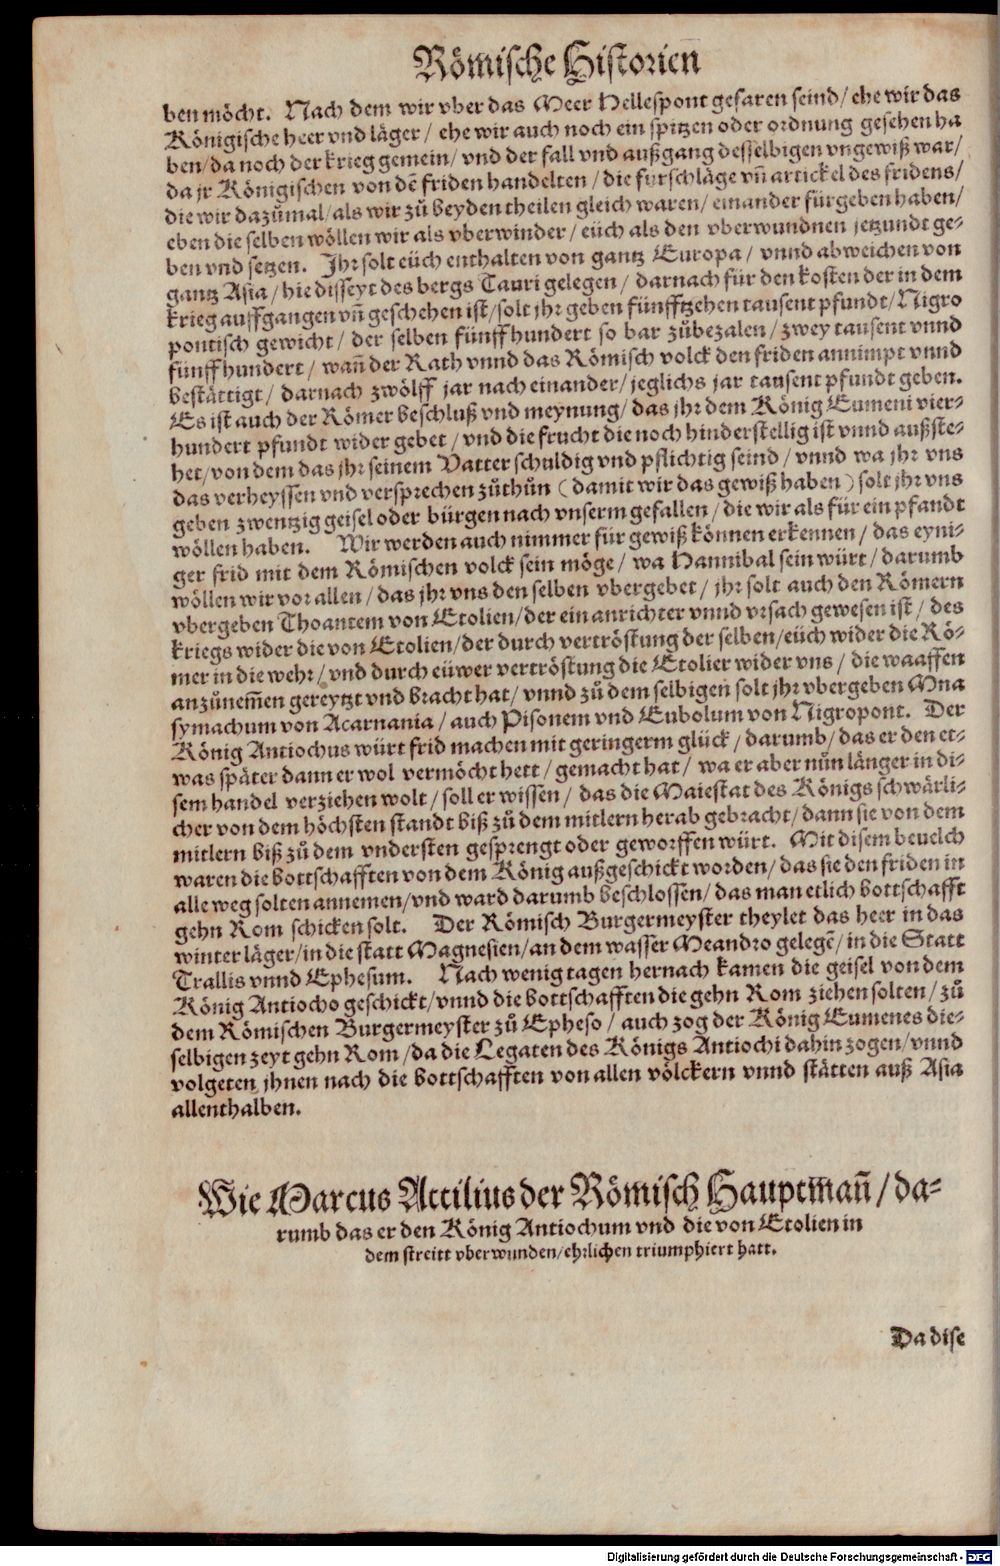 Römische Historieñ
ben möcht. Nach dem wir vber das Meer Hellespont gefaren seind/ ehe wir das
Königische heer vnd läger/ ehe wir auch noch ein spitzen oder ordnung gesehen ha
ben/ da noch der krieg gemein/ vnd der fall vnd außgang desselbigen vngewiß war/
da jr Königischen von dẽ friden handelten/ die fürschläge vñ artickel des fridens/
die wir dazůmal/ als wir zů beyden theilen gleich waren/ einander fürgeben haben/
eben die selben wöllen wir als vberwinder/ eüch als den vberwundnen jetzundt ge-
ben vnd setzen. Ihr solt eüch enthalten von gantz Europa/ vnnd abweichen von
gantz Asia/ hie disseyt des bergs Tauri gelegen/ darnach für den kosten der in dem
krieg auffgangen vñ geschehen ist/ solt jhr geben fünfftzehen tausent pfundt/ Nigro
pontisch gewicht/ der selben fünff hundert so bar zůbezalen/ zwey tausent vnnd
fünff hundert/ wañ der Rath vnnd das Römisch volck den friden annimpt vnnd
bestättigt/ darnach zwölff jar nach einander/ jeglichs jar tausent pfundt geben.
Es ist auch der Römer beschluß vnd meynung/ das jhr dem König Eumeni vier-
hundert pfundt wider gebet/ vnd die frucht die noch hinderstellig ist vnnd außste-
het/ von dem das jhr seinem Vatter schuldig vnd pflichtig seind/ vnnd wa jhr vns
das verheyssen vnd versprechen zůthůn (damit wir das gewiß haben) solt jhr vns
geben zwentzig geisel oder bürgen nach vnserm gefallen/ die wir als für ein pfandt
wöllen haben. Wir werden auch nimmer für gewiß können erkennen/ das eyni-
ger frid mit dem Römischen volck sein möge/ wa Hannibal sein würt/ darumb
wöllen wir vor allen/ das jhr vns den selben vbergebet/ jhr solt auch den Römern
vbergeben Thoantem von Etolien/ der ein anrichter vnnd vrsach gewesen ist/ des
kriegs wider die von Etolien/ der durch vertröstung der selben/ eüch wider die Rö-
mer in die wehr/ vnd durch eüwer vertröstung die Etolier wider vns/ die waaffen
anzůnem̃en gereytzt vnd bracht hat/ vnnd zů dem selbigen solt jhr vbergeben Mna
symachum von Acarnania/ auch Pisonem vnd Eubolum von Nigropont. Der
König Antiochus würt frid machen mit geringerm glück/ darumb/ das er den et-
was später dann er wol vermöcht hett/ gemacht hat/ wa er aber nůn länger in di-
sem handel verziehen wolt/ soll er wissen/ das die Maiestat des Königs schwärli-
cher von dem höchsten standt biß zů dem mitlern herab gebracht/ dann sie von dem
mitlern biß zů dem vndersten gesprengt oder geworffen würt. Mit disem beuelch
waren die bottschafften von dem König außgeschickt worden/ das sie den friden in
alle weg solten annemen/ vnd ward darumb beschlossen/ das man etlich bottschafft
gehn Rom schicken solt. Der Römisch Burgermeyster theylet das heer in das
winter läger/ in die statt Magnesien/ an dem wasser Meandro gelegẽ/ in die Statt
Trallis vnnd Ephesum. Nach wenig tagen hernach kamen die geisel von dem
König Antiocho geschickt/ vnnd die bottschafften die gehn Rom ziehen solten/ zů
dem Römischen Burgermeyster zů Epheso/ auch zog der König Eumenes die-
selbigen zeyt gehn Rom/ da die Legaten des Königs Antiochi dahin zogen/ vnnd
volgeten jhnen nach die bottschafften von allen völckern vnnd stätten auß Asia
allenthalben.
Wie Marcus Attilius der Römisch Hauptmañ/ da-
rumb das er den König Antiochum vnd die von Etolien in
dem streitt vberwunden/ ehrlichen triumphiert hatt.
Da dise
Digitalisierung gefördert durch die Deutsche Forschungsgemeinschaft - DFG